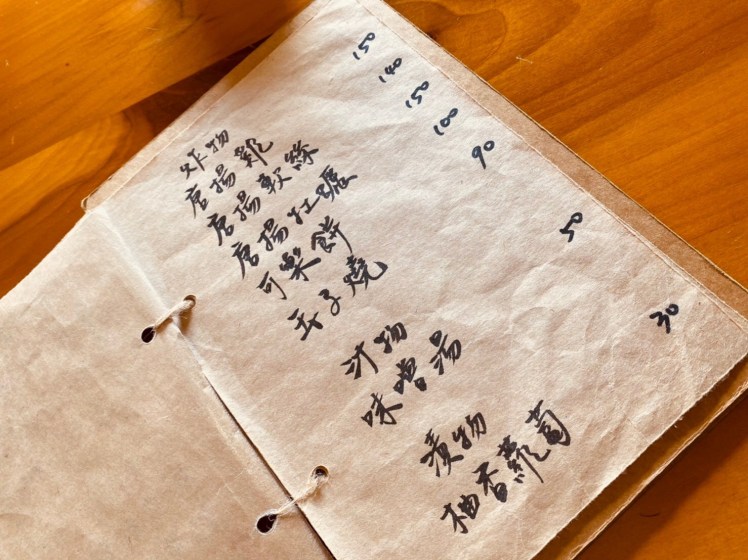 炸物
唐揚雞 150
唐揚軟絲 140
唐揚牡蠣 150
可樂餅 100
玉子燒 90
汁物
味噌湯 50
漬物
柚香蘿蔔 30